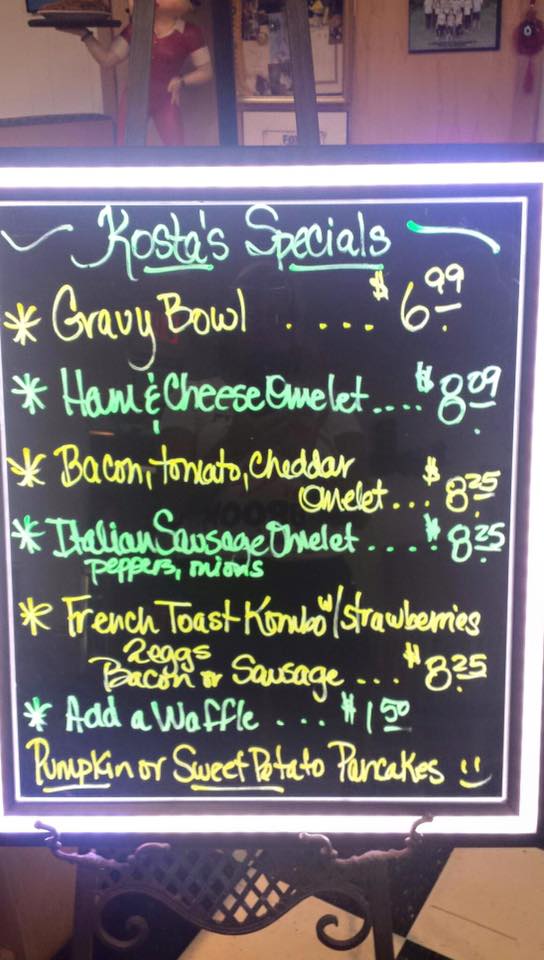 Kosta's Specials
* Gravy Bowl .... $6.99
* Ham & Cheese Omelet.... $8.09
* Bacon, tomato, cheddar
Omelet... $8.25
* Italian Sausage Omelet .... $8.25
peppers, onions
* French Toast Kombo w/strawberries
2 eggs
Bacon or Sausage ... $8.25
* Add a Waffle ... $1.50
Pumpkin or Sweet Potato Pancakes